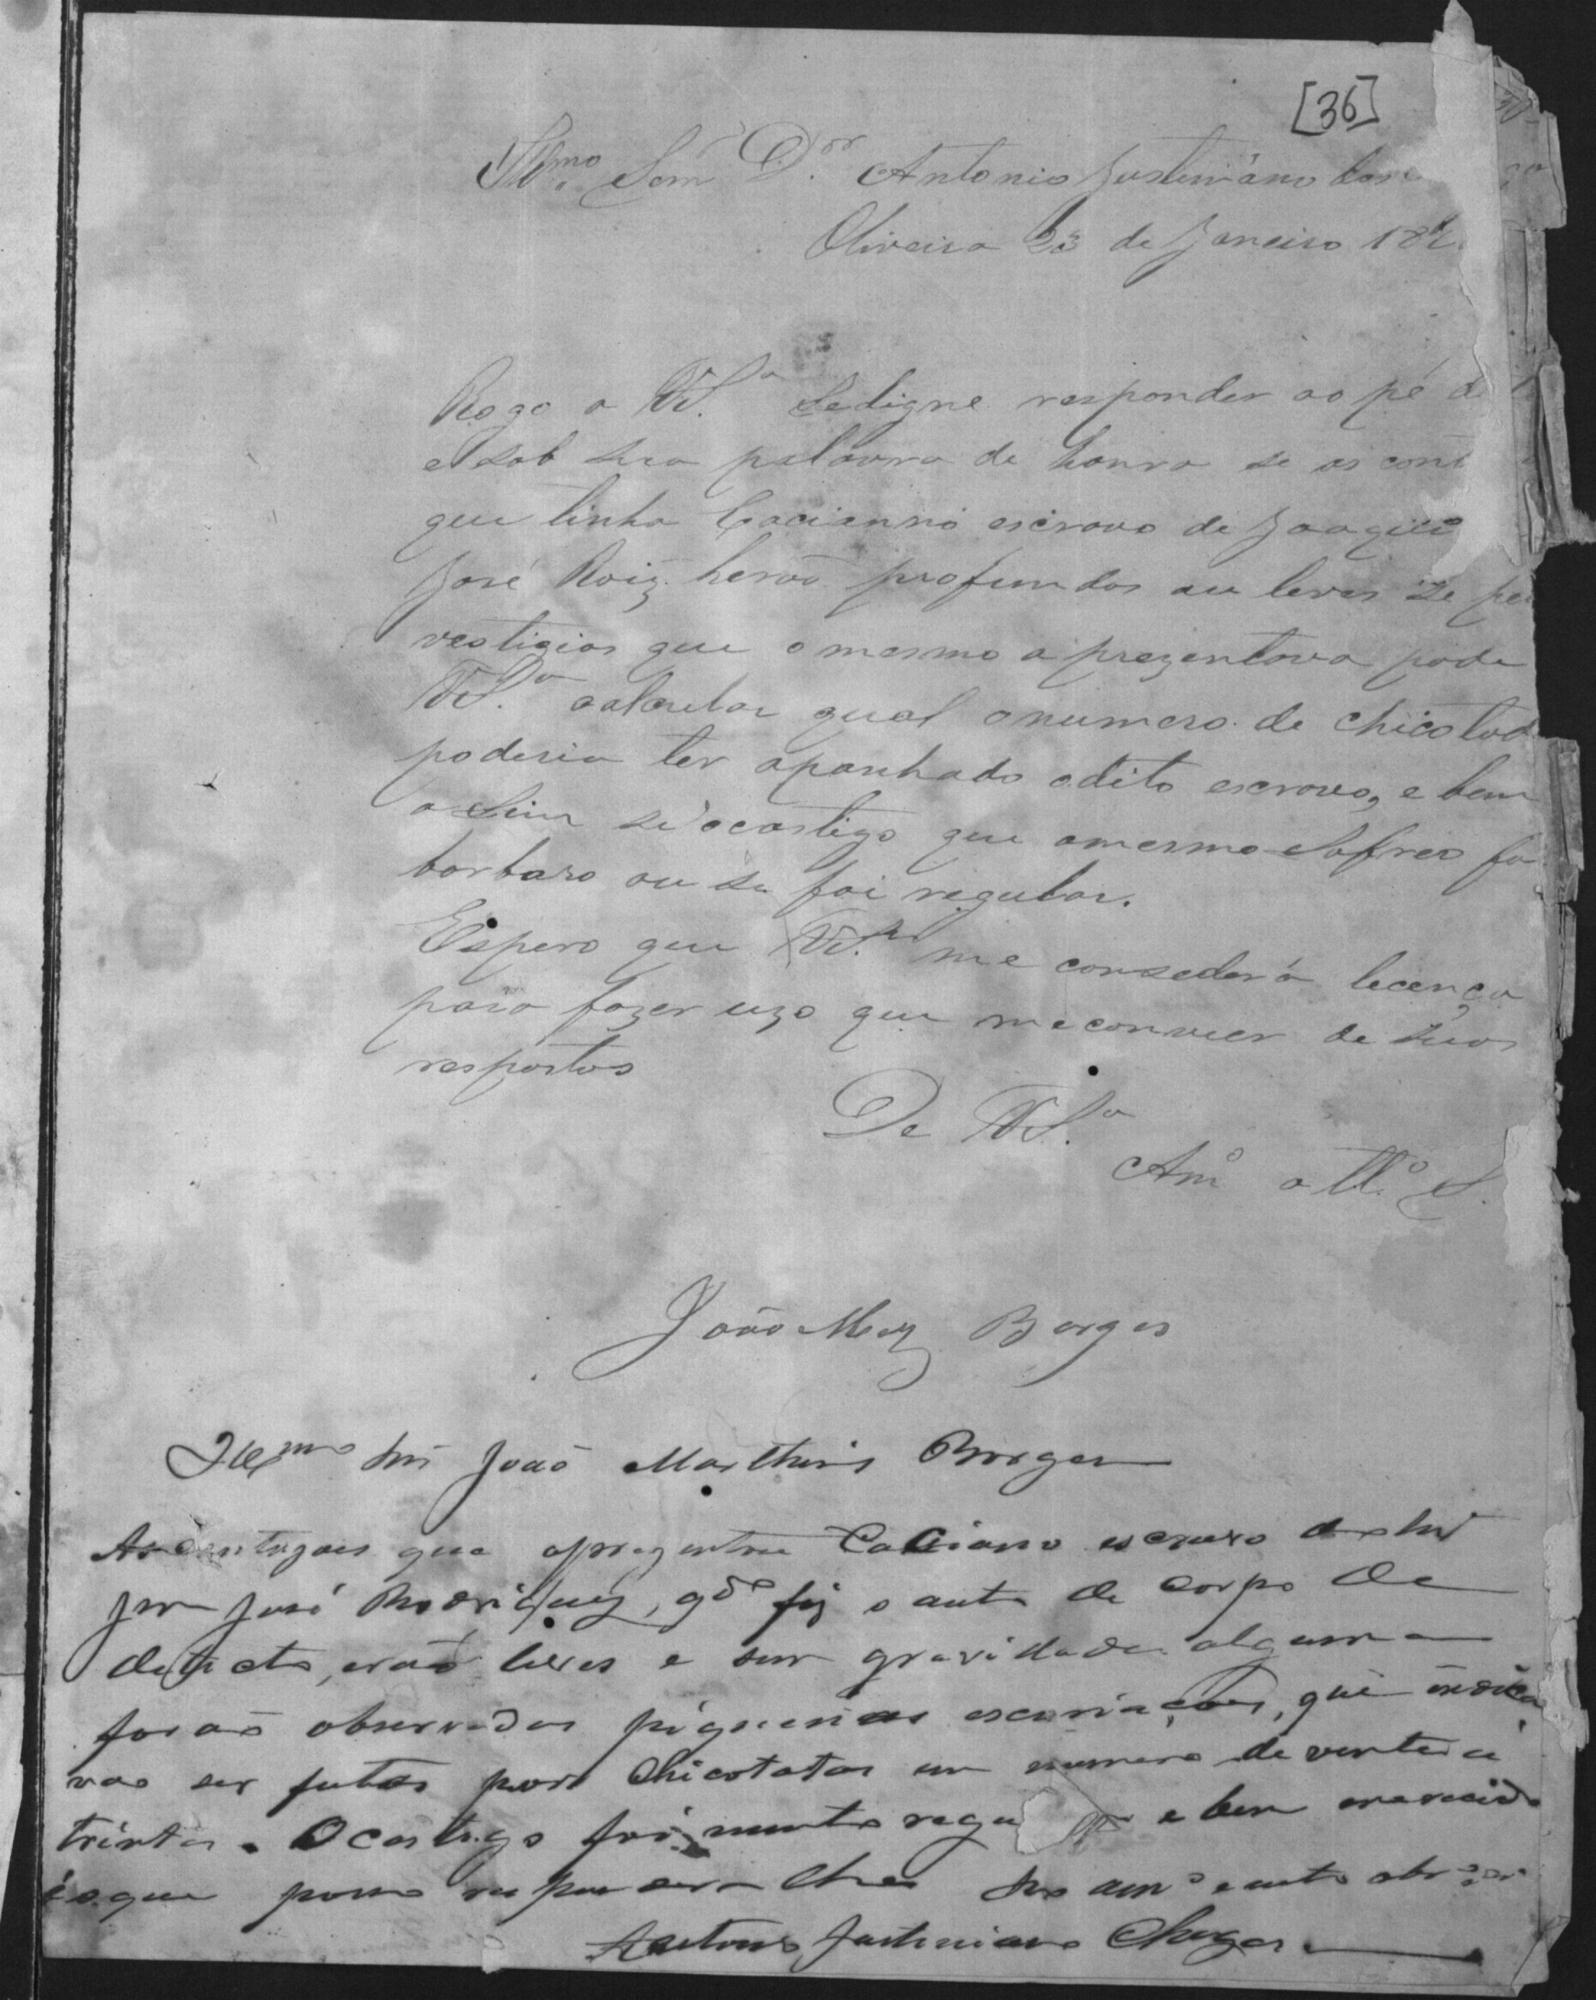 [36]
Illmo. Senr. Dor. Antonio Justiniano
Oliveira 23 de Janeiro 187
Rogo a VS.a Sedigne responder ao pé d
e sob sua palavra de honra se as cont
que tinha Cacianno escravo de Joaquim
José Roiz herão profundos ou leves se pe
vestigios que o mesmo aprezentava pode
VS.a calcular qual o numero de chicotad
poderia ter apanhado o dito escravo, e bem
a Sim se o castigo que o mesmo Sofreo fo
barbaro ou se foi regular.
Espero que VS.a me consederá lecença
para fazer uzo que me convier de suas
respostas
De VS.a
Amo. a tto. S.
João Miz Borges
Illmo Snr João Marthins Borges
As contuzoes que aprezentou Caciano escravo do Snr
José Rodriguez, qdo fiz o auto de corpo de
delicto, erão leves e sem gravidade alguma
forão observadas piquenas escuriaçoes, que indica
vao ser feitas por Chicotadas em numero de vinte a
trinta. O castigo foi muito regu e bem merecido
é o que posso responder lhe Seu amo e mto obr
Antonio Justiniano Chagas